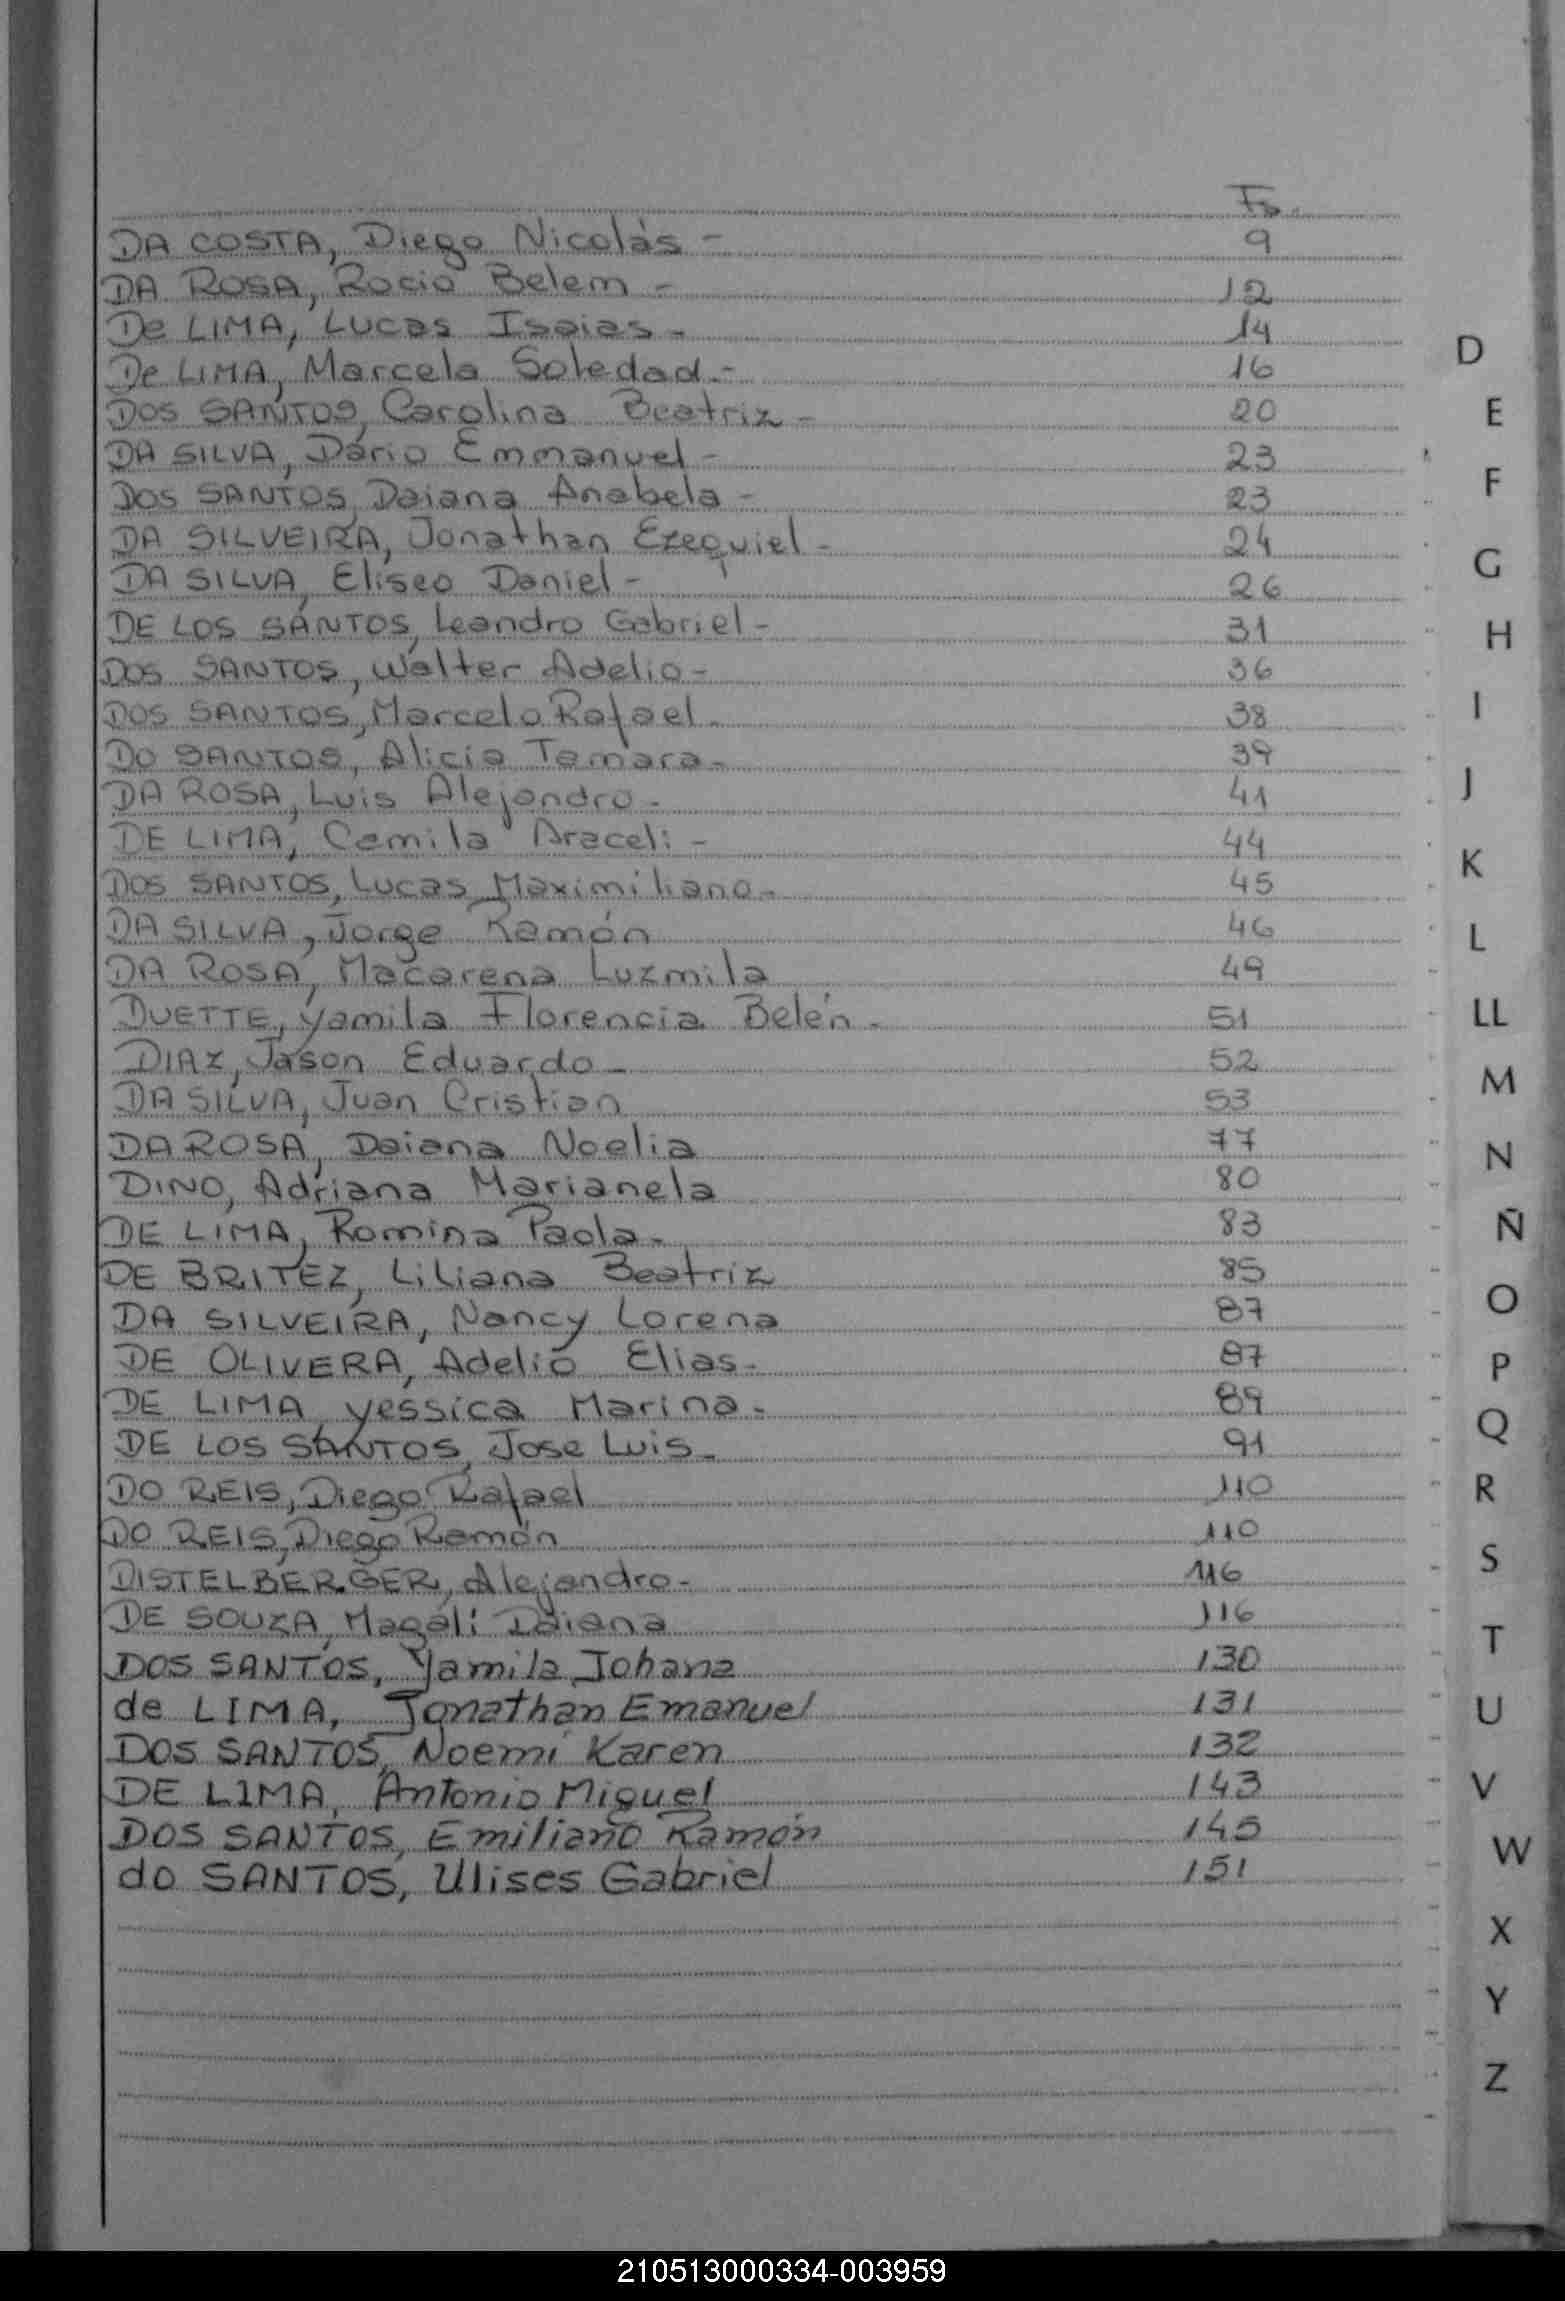 Fs.
DA COSTA, Diego Nicolás - 9
DA ROSA, Rocio Belem - 12
De LIMA, Lucas Isaias - 14
De LIMA, Marcela Soledad.- 16
DOS SANTOS, Carolina Beatriz - 20
DA SILVA, Dario Emmanuel - 23
DOS SANTOS, Daiana Anabela - 23
DA SILVEIRA, Jonathan Ezequiel - 24
DA SILVA, Eliseo Daniel - 26
DE LOS SANTOS, Leandro Gabriel - 31
DOS SANTOS, Walter Adelio - 36
DOS SANTOS, Marcelo Rafael. 38
DO SANTOS, Alicia Tamara - 39
DA ROSA, Luis Alejandro - 41
DE LIMA, Camila Araceli - 44
DOS SANTOS, Lucas Maximiliano - 45
DA SILVA, Jorge Ramón 46
DA ROSA, Macarena Luzmila 49
DUETTE, Yamila Florencia Belén - 51
DIAZ, Jason Eduardo - 52
DA SILVA, Juan Cristian 53
DA ROSA, Daiana Noelia 77
DINO, Adriana Marianela 80
DE LIMA, Romina Paola - 83
DE BRITEZ, Liliana Beatriz 85
DA SILVEIRA, Nancy Lorena 87
DE OLIVERA, Adelio Elias - 87
DE LIMA, Yessica Marina - 89
DE LOS SANTOS, Jose Luis - 91
DO REIS, Diego Rafael 110
DO REIS, Diego Ramón 110
DISTELBERGER, Alejandro - 116
DE SOUZA, Magali Daiana 116
DOS SANTOS, Yamila Johana 130
de LIMA, Jonathan Emanuel 131
DOS SANTOS, Noemí Karen 132
DE LIMA, Antonio Miguel 143
DOS SANTOS, Emiliano Ramón 145
do SANTOS, Ulises Gabriel 151
D
E
F
G
H
I
J
K
L
LL
M
N
Ñ
O
P
Q
R
S
T
U
V
W
X
Y
Z
210513000334-003959